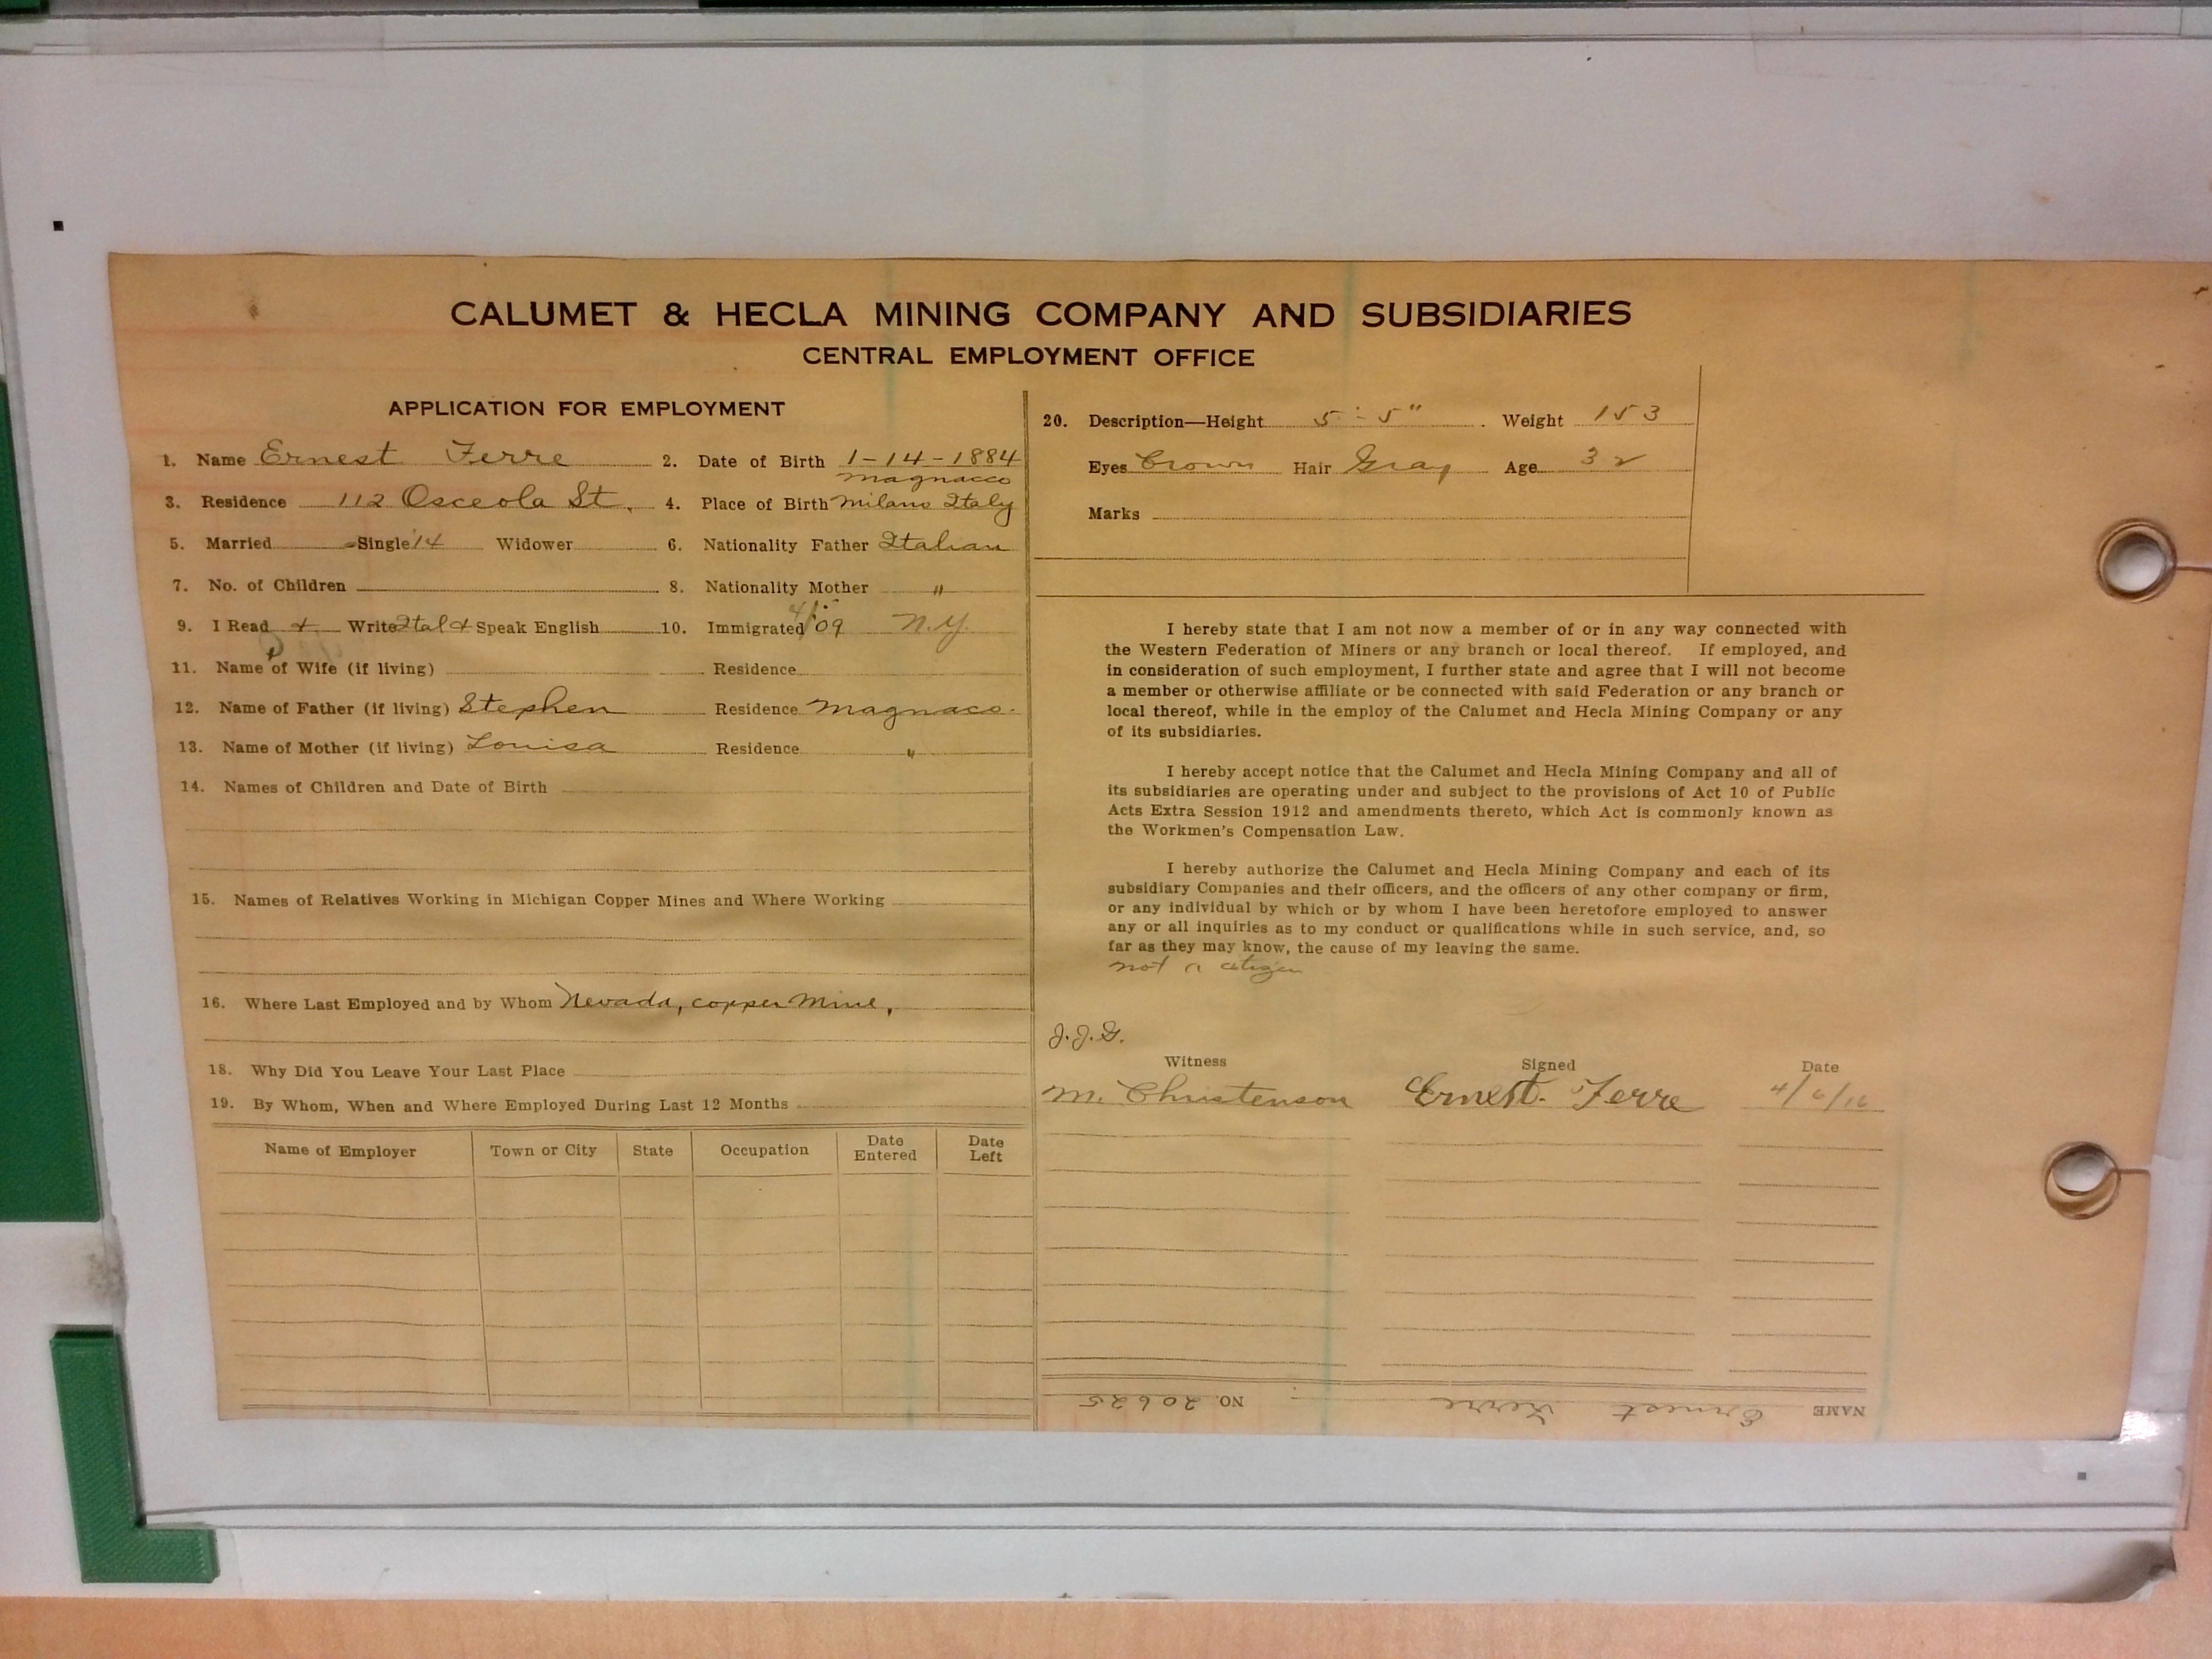 CALUMET & HECLA MINING COMPANY AND SUBSIDIARIES
CENTRAL EMPLOYMENT OFFICE
APPLICATION FOR EMPLOYMENT
1. Name Ernest Ferre 2. Date of Birth 1-14-1884
Magnacco
3. Residence 112 Osceola St. 4. Place of Birth Milano Italy
5. Married Single 14 Widower 6. Nationality Father Italian
7. No. of Children 8. Nationality Mother "
9. I Read & Write Ital & Speak English 10. Immigrated 4/09 N.Y.
11. Name of Wife (if living) Residence
12. Name of Father (if living) Stephen Residence Magnaco.
13. Name of Mother (if living) Louisa Residence "
14. Names of Children and Date of Birth
15. Names of Relatives Working in Michigan Copper Mines and Where Working
16. Where Last Employed and by Whom Nevada, copper Mine,
18. Why Did You Leave Your Last Place
19. By Whom, When and Where Employed During Last 12 Months
Name of Employer Town or City State Occupation Date Entered Date Left
20. Description—Height 5'-5" Weight 153
Eyes Brown Hair Gray Age 32
Marks
I hereby state that I am not now a member of or in any way connected with
the Western Federation of Miners or any branch or local thereof. If employed, and
in consideration of such employment, I further state and agree that I will not become
a member or otherwise affiliate or be connected with said Federation or any branch or
local thereof, while in the employ of the Calumet and Hecla Mining Company or any
of its subsidiaries.
I hereby accept notice that the Calumet and Hecla Mining Company and all of
its subsidiaries are operating under and subject to the provisions of Act 10 of Public
Acts Extra Session 1912 and amendments thereto, which Act is commonly known as
the Workmen's Compensation Law.
I hereby authorize the Calumet and Hecla Mining Company and each of its
subsidiary Companies and their officers, and the officers of any other company or firm,
or any individual by which or by whom I have been heretofore employed to answer
any or all inquiries as to my conduct or qualifications while in such service, and, so
far as they may know, the cause of my leaving the same.
not a citizen
J.J.G.
Witness Signed Date
M. Christenson Ernest Ferre 4/6/16
NAME Ernest Ferre NO. 20625